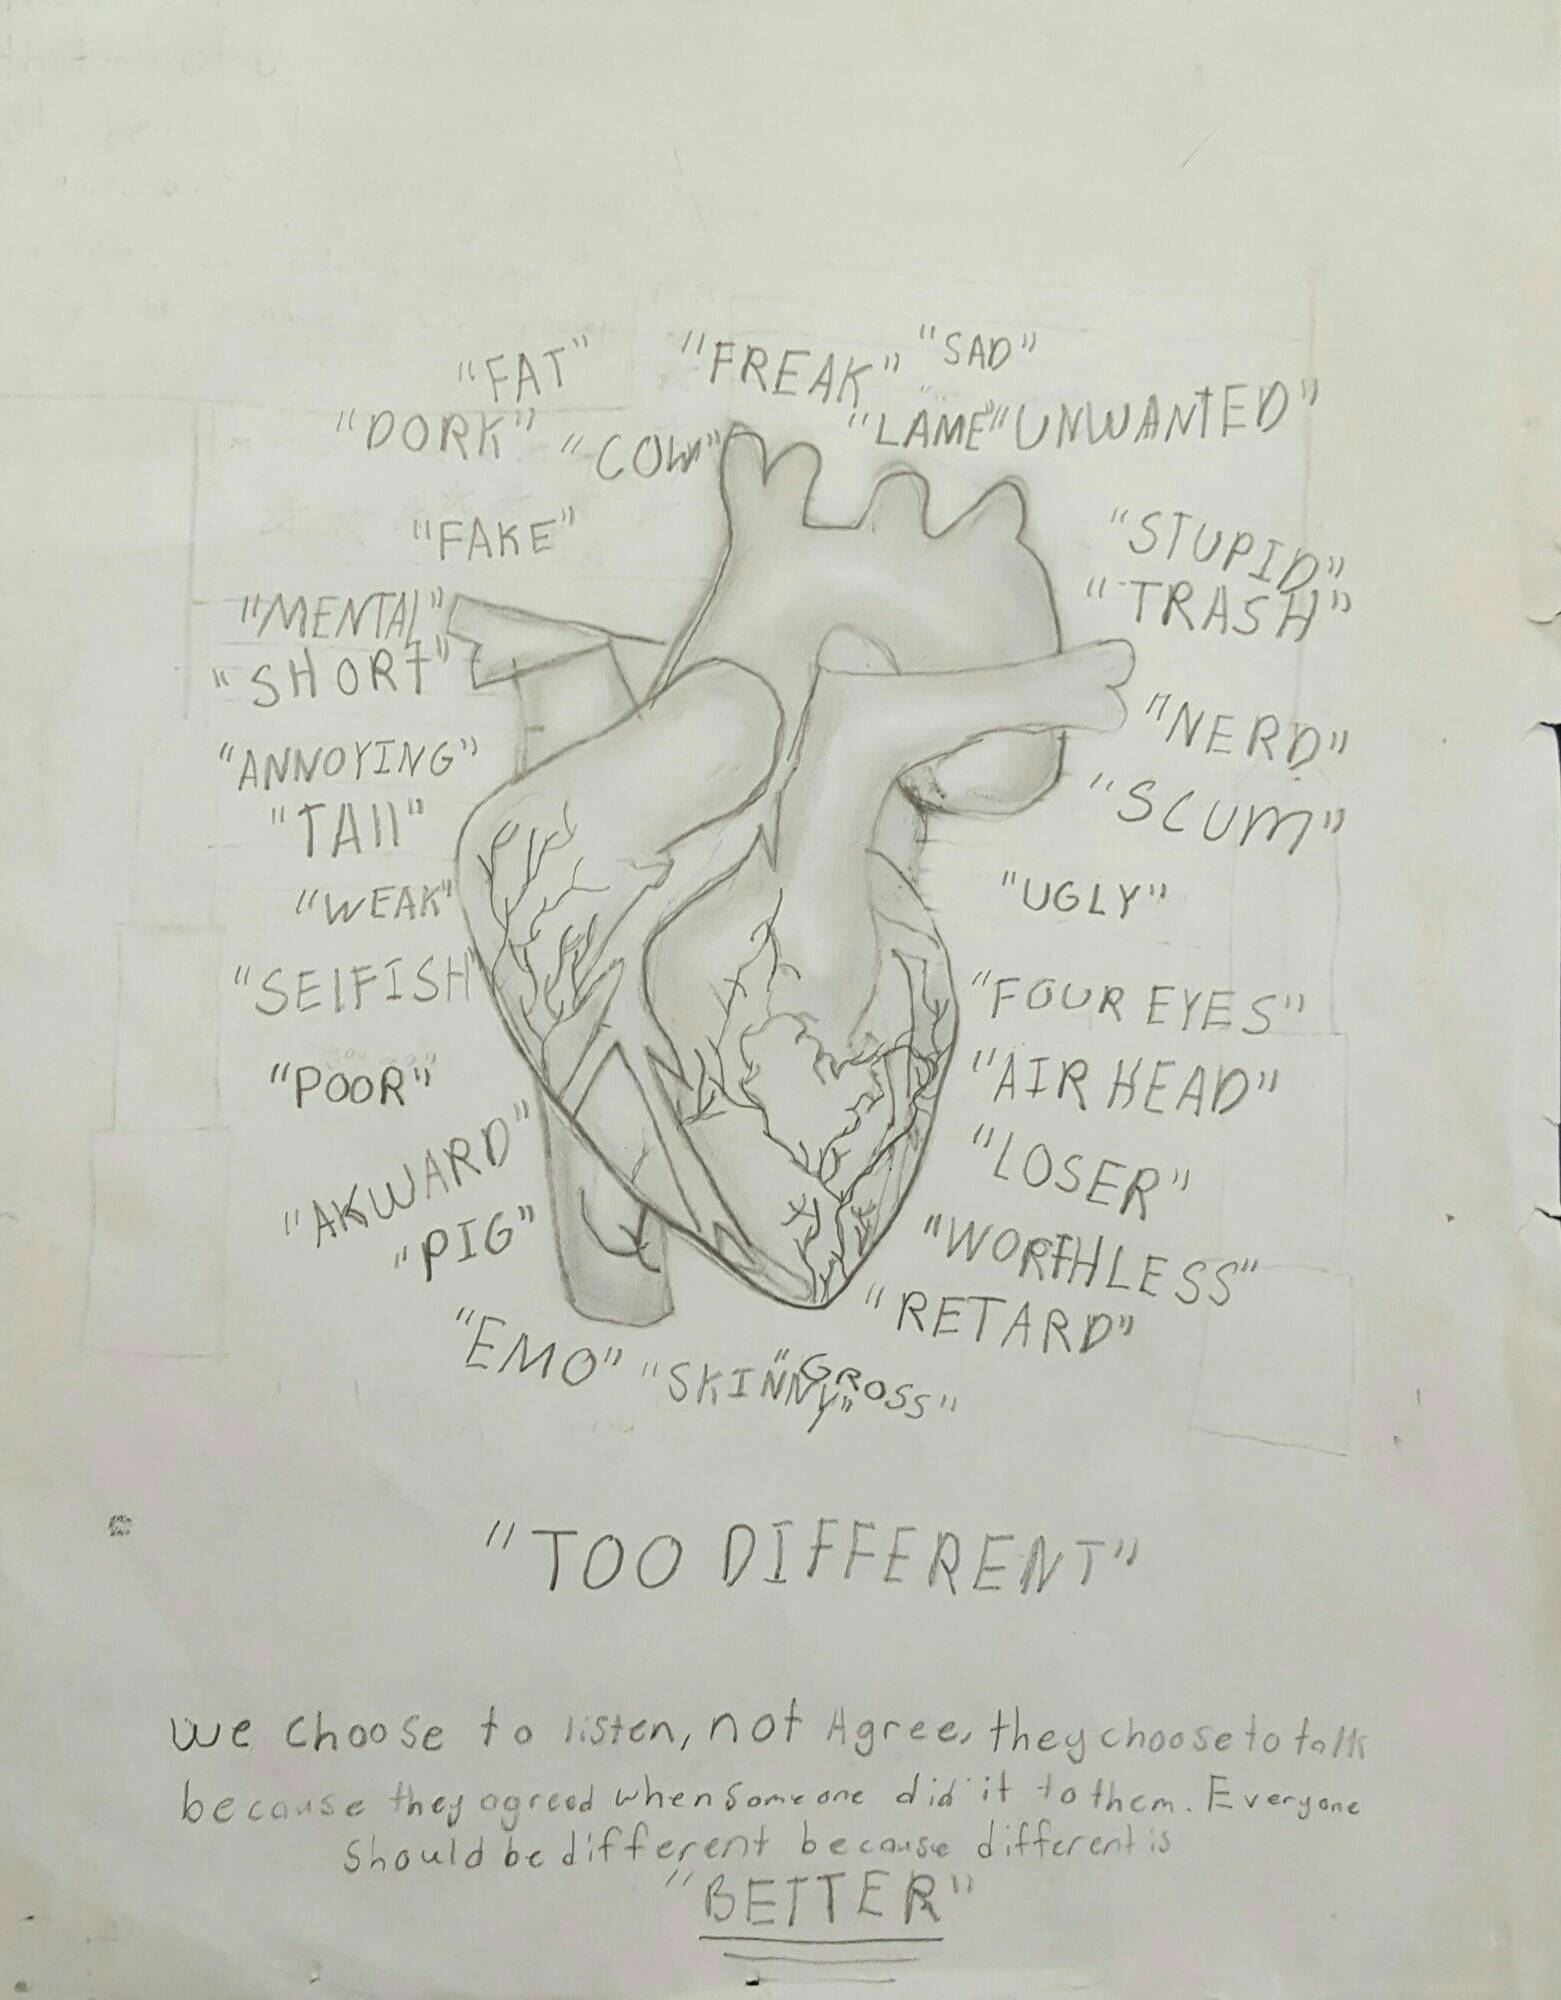 "FAT" "FREAK" "SAD"
"DORK" "COW" "LAME" "UNWANTED"
"FAKE" "STUPID"
"MENTAL" "TRASH"
"SHORT"
"ANNOYING" "NERD"
"TAll" "SCUM"
"WEAK" "UGLY"
"SElFISH" "FOUR EYES"
"POOR" "AIR HEAD"
"AKWARD" "LOSER"
"PIG" "WORTHLESS"
"RETARD"
"EMO" "SKINNY" "GROSS"
"TOO DIFFERENT"
we choose to listen, not Agree, they choose to talk
because they agreed when someone did it to them. Everyone
should be different because different is
"BETTER"